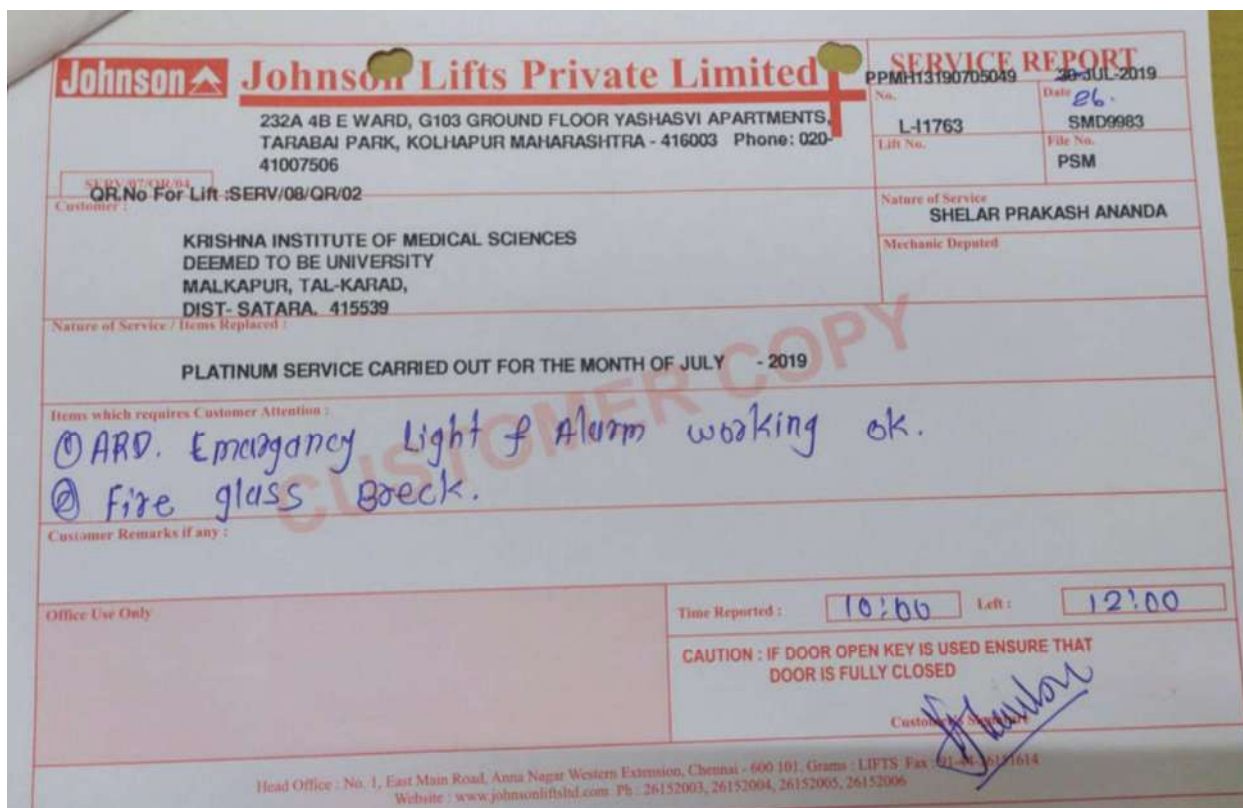 Johnson
Johnson Lifts Private Limited
232A 4B E WARD, G103 GROUND FLOOR YASHASVI APARTMENTS,
TARABAI PARK, KOLHAPUR MAHARASHTRA - 416003 Phone: 020-
41007506
SERVICE REPORT
PPMH13190705049 30-JUL-2019
No. Date 26.
L-I1763 SMD9983
Lift No. File No.
PSM
SERV/07/QR/04
QR.No For Lift :SERV/08/QR/02
Customer :
KRISHNA INSTITUTE OF MEDICAL SCIENCES
DEEMED TO BE UNIVERSITY
MALKAPUR, TAL-KARAD,
DIST- SATARA. 415539
Nature of Service
SHELAR PRAKASH ANANDA
Mechanic Deputed
Nature of Service / Items Replaced :
PLATINUM SERVICE CARRIED OUT FOR THE MONTH OF JULY - 2019
CUSTOMER COPY
Items which requires Customer Attention :
① ARD. Emargancy Light & Alarm working ok.
② Fire glass Breck.
Customer Remarks if any :
Office Use Only
Time Reported : 10:00 Left : 12:00
CAUTION : IF DOOR OPEN KEY IS USED ENSURE THAT
DOOR IS FULLY CLOSED
Customer's Signature
Head Office : No. 1, East Main Road, Anna Nagar Western Extension, Chennai - 600 101. Grams : LIFTS Fax : 91-44-26151614
Website : www.johnsonliftsltd.com Ph : 26152003, 26152004, 26152005, 26152006